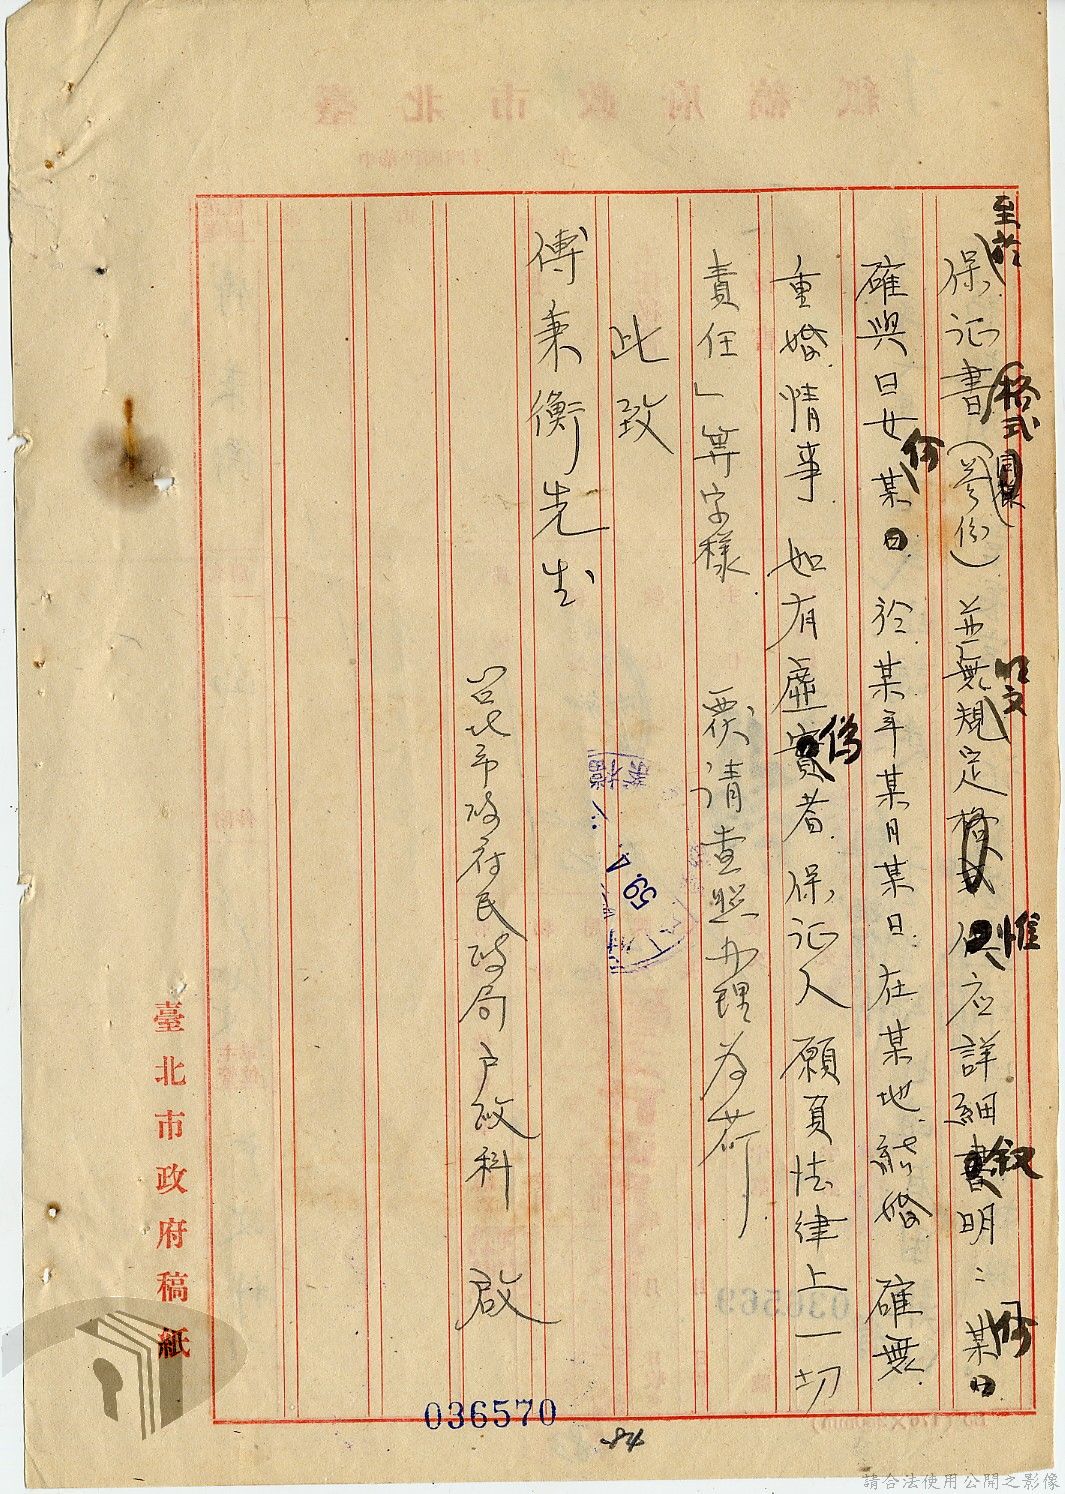 至於保证書格式（叁份）並無明文規定惟应詳細叙明：某何
確與日女何某於某年某月某日在某地結婚確無
重婚情事如有虛偽者保证人願負法律上一切
責任」等字樣 覆请查照办理為荷
此致
傅秉衡先生
台北市政府民政局户政科 啟
臺北市政府稿紙
036570
84
請合法使用公開之影像